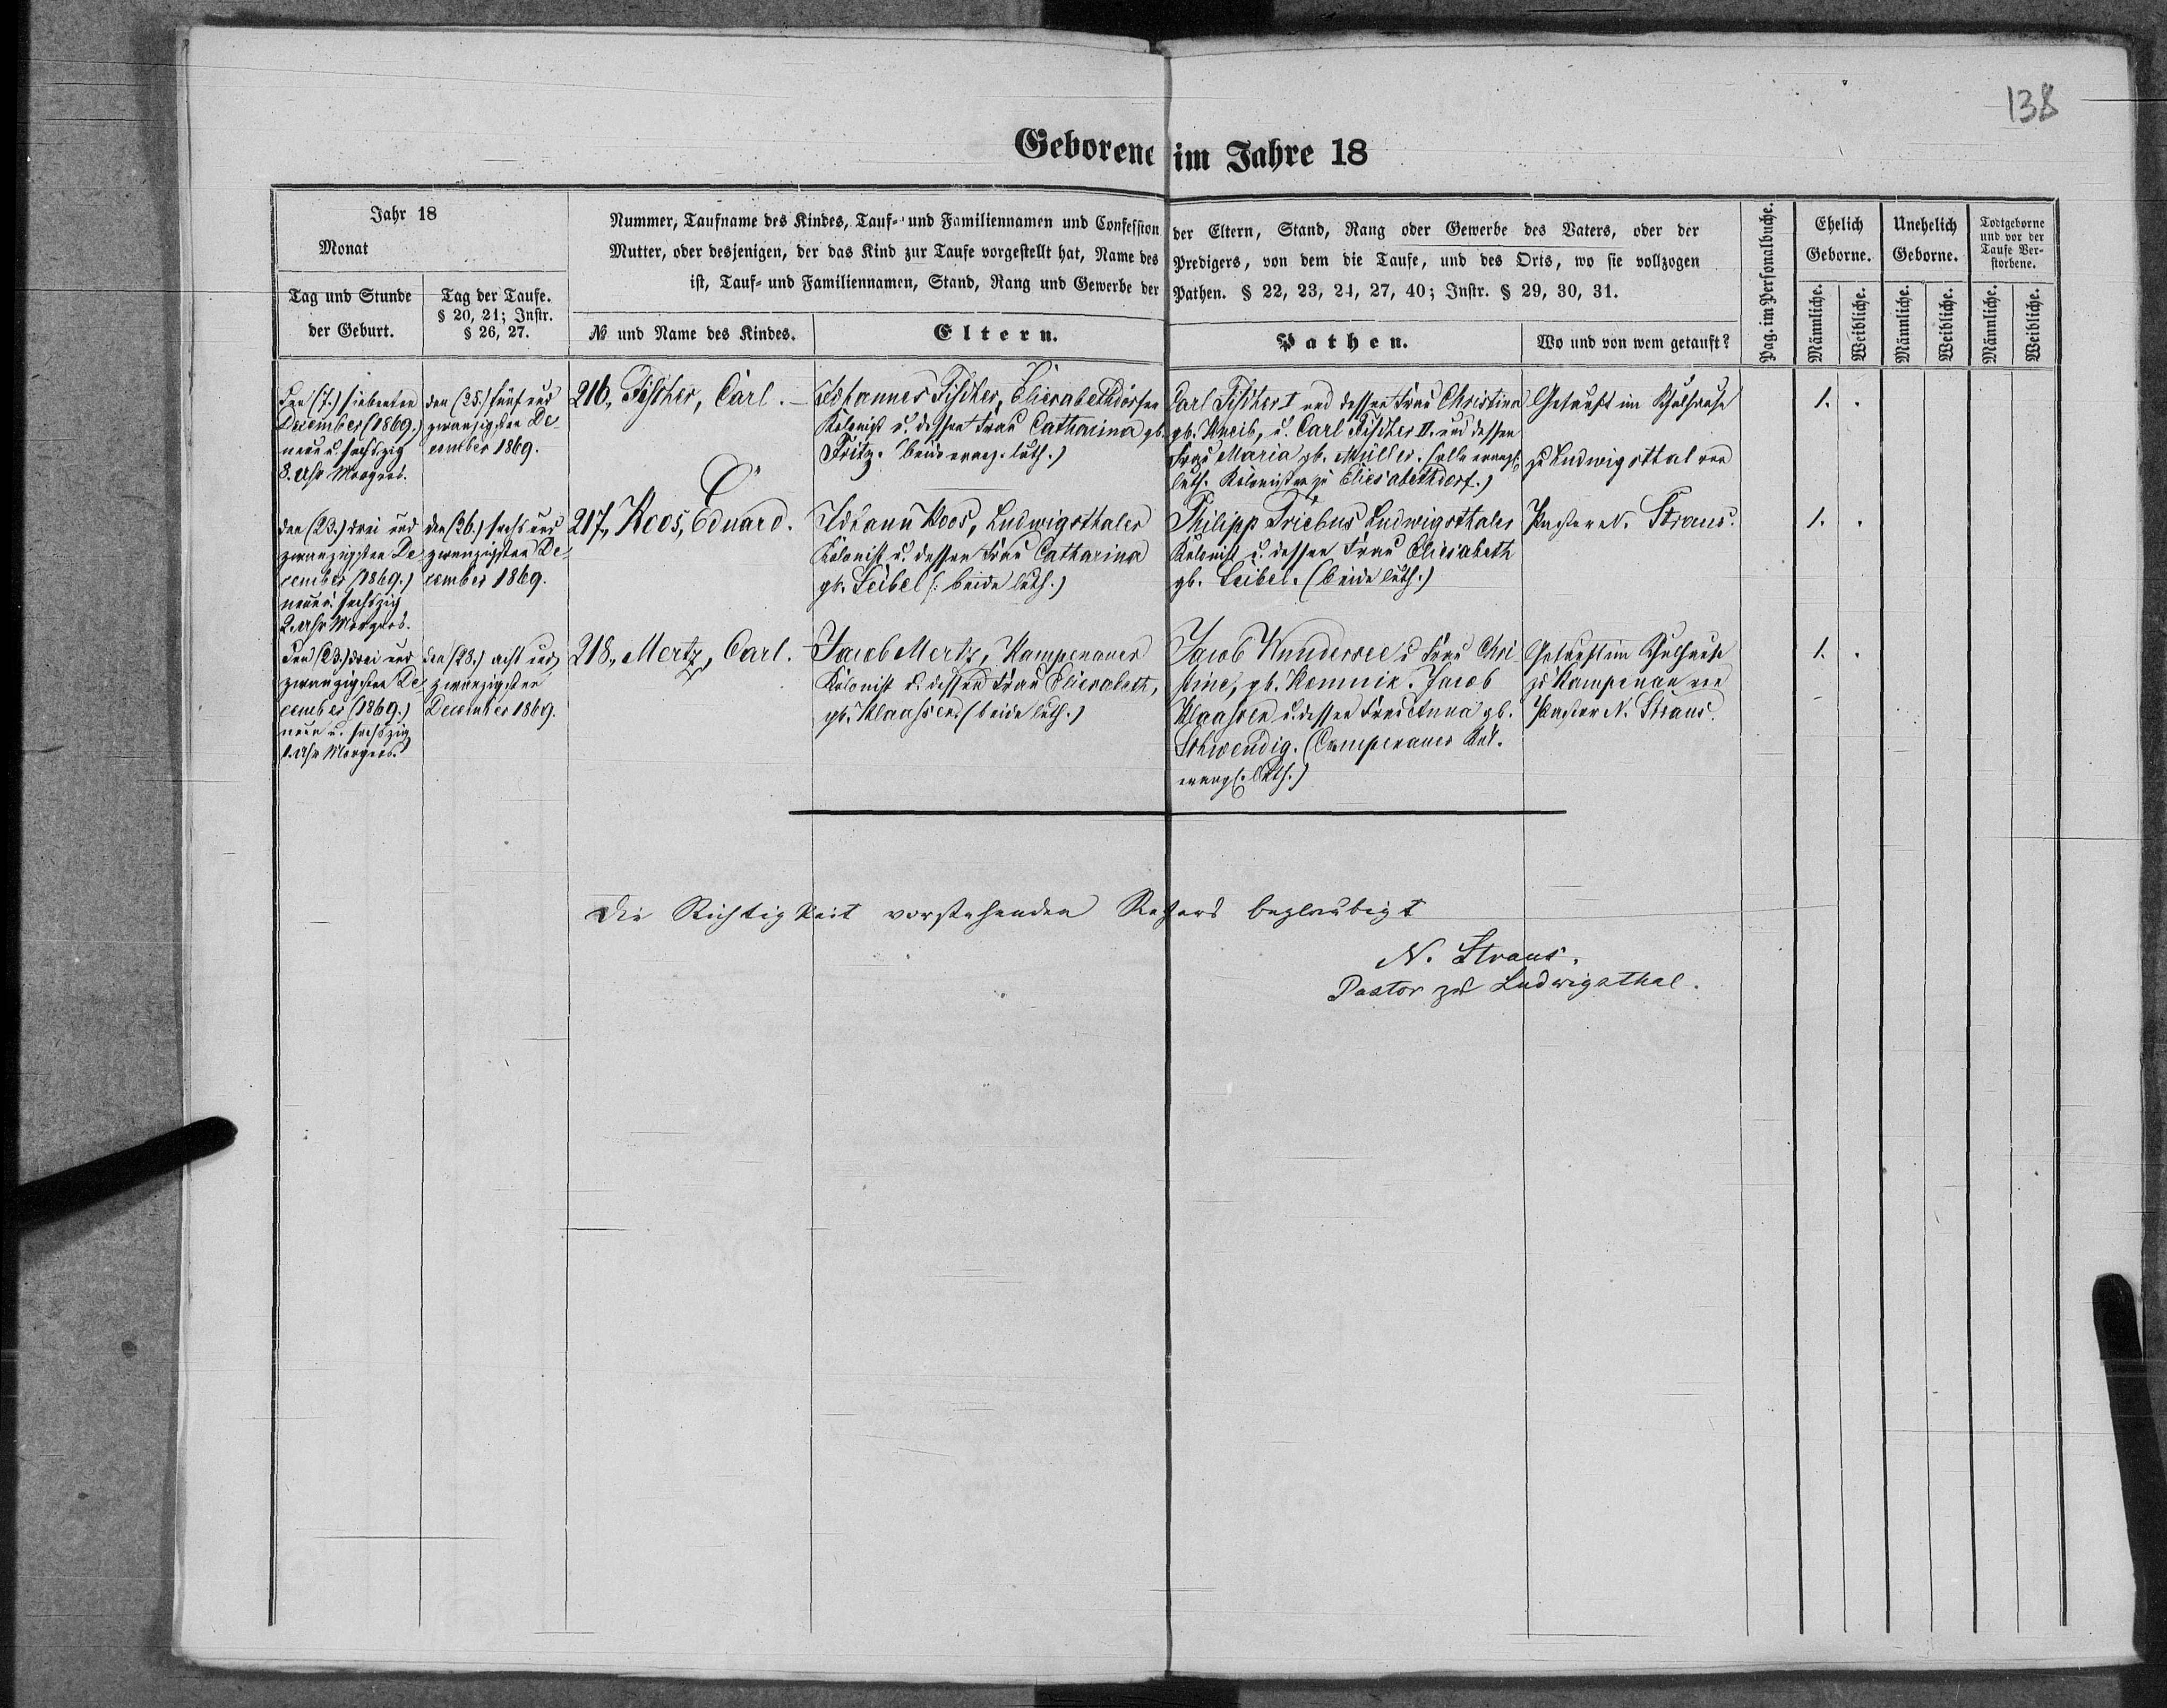 138
Geborene im Jahre 18
Jahr 18
Monat
Tag und Stunde
der Geburt.
Tag der Taufe.
§ 20, 21; Instr.
§ 26, 27.
Nummer, Taufname des Kindes, Tauf- und Familiennamen und Confession der Eltern, Stand, Rang oder Gewerbe des Vaters, oder der
Mutter, oder desjenigen, der das Kind zur Taufe vorgestellt hat, Name des Predigers, von dem die Taufe, und des Orts, wo sie vollzogen
ist, Tauf- und Familiennamen, Stand, Rang und Gewerbe der Pathen. § 22, 23, 24, 27, 40; Instr. § 29, 30, 31.
№ und Name des Kindes.
Eltern.
Pathen.
Wo und von wem getauft?
Pag. im Personalbuche.
Ehelich
Geborne.
Unehelich
Geborne.
Todtgeborne
und vor der
Taufe Ver-
storbene.
Männliche.
Weibliche.
Männliche.
Weibliche.
Männliche.
Weibliche.
Den (7.) siebenten
December (1869.)
neun u. sechszig
8. Uhr Morgens.
den (25.) fünf und
zwanzigsten De
cember 1869.
216, Fischer, Carl.
Johannes Fischer, Eliesabethdorfer
Kolonist u. dessen Frau Catharina gb.
Fritz. (beide evang. luth.)
Carl Fischer I und dessen Frau Christina
gb. Kneib, u. Carl Fischer II. und dessen
Frau Maria gb. Müller. (alle evangl.
luth. Kolonisten zu Eliesabethdorf.)
Getauft im Schulhause
zu Ludwigsthal von
Pastor N. Straus.
1. .
den (23.) drei und
zwanzigsten De
cember (1869.)
neun u. sechszig
2. Uhr Morgens.
den (26.) sechs und
zwanzigsten De
cember 1869.
217, Koos, Eduard.
Johann Koos, Ludwigsthaler
Kolonist u. dessen Frau Catharina
gb. Seibel (: beide luth.)
Philipp Triebus Ludwigsthaler
Kolonist u. dessen Frau Eliesabeth
gb. Seibel. (beide luth.)
1. .
Den (23.) drei und
zwanzigsten De
cember (1869.)
neun u. sechszig
1. Uhr Morgens.
den (28.) acht und
zwanzigsten
December 1869.
218, Mertz, Carl.
Jacob Mertz, Kampenauer
Kolonist u. dessen Frau Eliesabeth,
gb. Klaassen. (beide luth.)
Jacob u. Frau Chri
stine, gb. Jacob
Klaassen u. dessen Frau Anna gb.
Schwendig. (Campenauer Kol.
evangl. luth.)
Getauft im Schulhause
zu Kampenau von
Pastor N. Straus.
1. .
Die Richtigkeit vorstehenden beglaubigt
N. Straus.
Pastor zu Ludwigsthal.